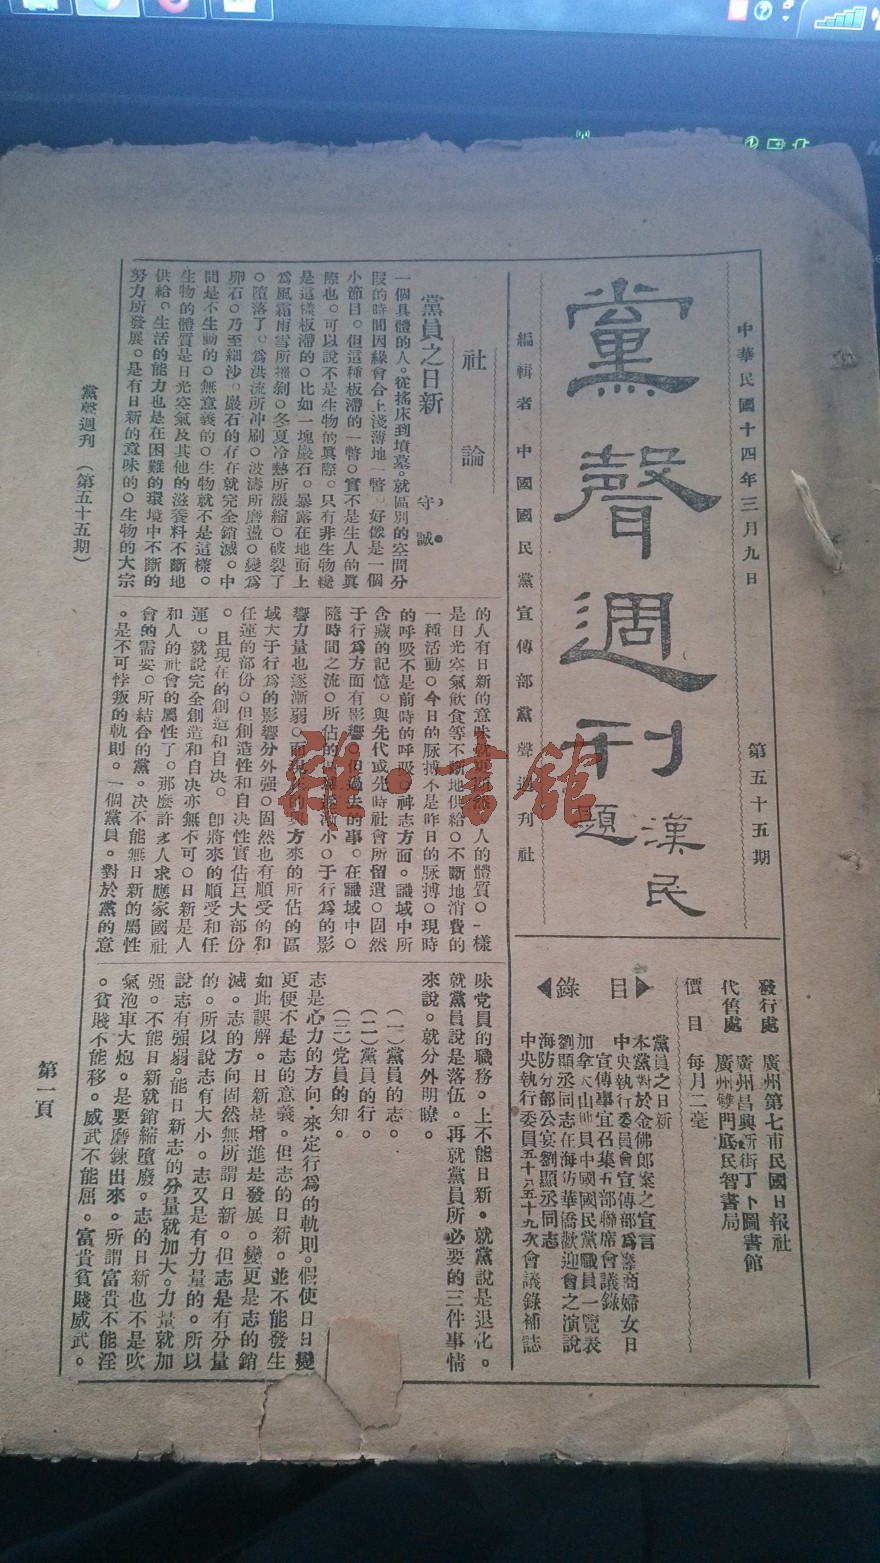 中華民國十四年三月九日
第五十五期
黨聲週刊
漢民
題
編輯者　中國國民黨宣傳部黨聲週刊社
發行處　廣州第七甫民國日報社
代售處　廣州昌興新街丁卜圖書館
廣州雙門底民智書局
價目　每月二毫
目錄
黨員之日新
本黨對於金佛郎案之宣言
中央執行委員會宣傳部為籌商婦女日
宣傳事宜召集五部聯席會議錄
加拿大山呲貝中國國民黨職員一覽表
劉顯丞同志在海防華僑歡迎會之演說
海防分部公宴劉顯丞同志
中央執行委員五十八五十九次會議錄補誌
社論
黨員之日新
守誠
一個具體的人。從搖床到墳墓。就區別的空間分
段的時間因緣會合上淺薄地一瞥。好像是一個
小節目。但這種板滯的一瞥。實不是生人的真
際也。可以說不是生物的真際。只有非生物纔
是這樣板滯的。比如一塊巖石。暴露在地面上
為風霜雨雪所摧剝。冬夏冷熱所漲縮。破裂了
。墮落了。為洪流所冲刷。波濤所磨盪。變為
卵石。乃至細沙。巖石的存在就完全銷滅。中
間是不生動的。無意義的。生物就不是這樣。
生物的體質是日光空氣及其他的滋養料不斷地
供給。生活的能力也是在困難的環境中不斷的
努力所發展。是有日新的意味的。生物的大宗
的人有日新的意味就更顯然。人的體質。一樣
是日光空氣飲食等不斷地供給。不斷地消費的
一種活動。今日的脉搏不是昨日的脉搏。現時
的呼吸不是前時的呼吸。神志方面。識域中所
含藏的記憶。與先代或先時社會所留遺。固然
于行為方面有影響。但過去的事。在識域中。
隨時間之流。所佔的漸小。于行為的影
響力量也逐漸弱。而現在的方來的所佔的區
域大于行為的影響分外强。固然也有順受的和
任運的部份。但創造性和自决性實佔巨大部份
。且現在的創造和自决。卽將來的順受和任
運。就說完全創造和自决亦無不可。日新是人
和人的社會的屬性了。那麽許多人求應家國社
會的需要。所結合的黨。决不能無日新的屬性
。是不可悖叛的軌則。一個黨員。對於黨的意
味党員的職務。上不能日新。就黨說是退化。
就黨員說是落伍。再就黨員所必要的三件事情
來說。就分外明瞭。
（一）黨員的志。
（二）黨員的行。
（三）党員的知。
志是心力的方向。來定行為的軌則。假使日日變
更便不是志的意義。但志的日新。並不能發生
如此誤解。日新是增進是發展。變更是志的銷
滅。志的方向固然無所謂日新。但志是有分量
的。所以說志有大小。志又是有力量的。所以
說志有强弱。能日新志的分量就加大。力量就加
强。不能日新就銷縮墮廢。志的日新也不是吹
氣泡車大炮。是要磨鍊出來。所謂富貴不能淫
。貧賤不能移。威武不能屈。富貴貧賤威武。
黨聲週刊　（第五十五期）
第一頁
雜·書館